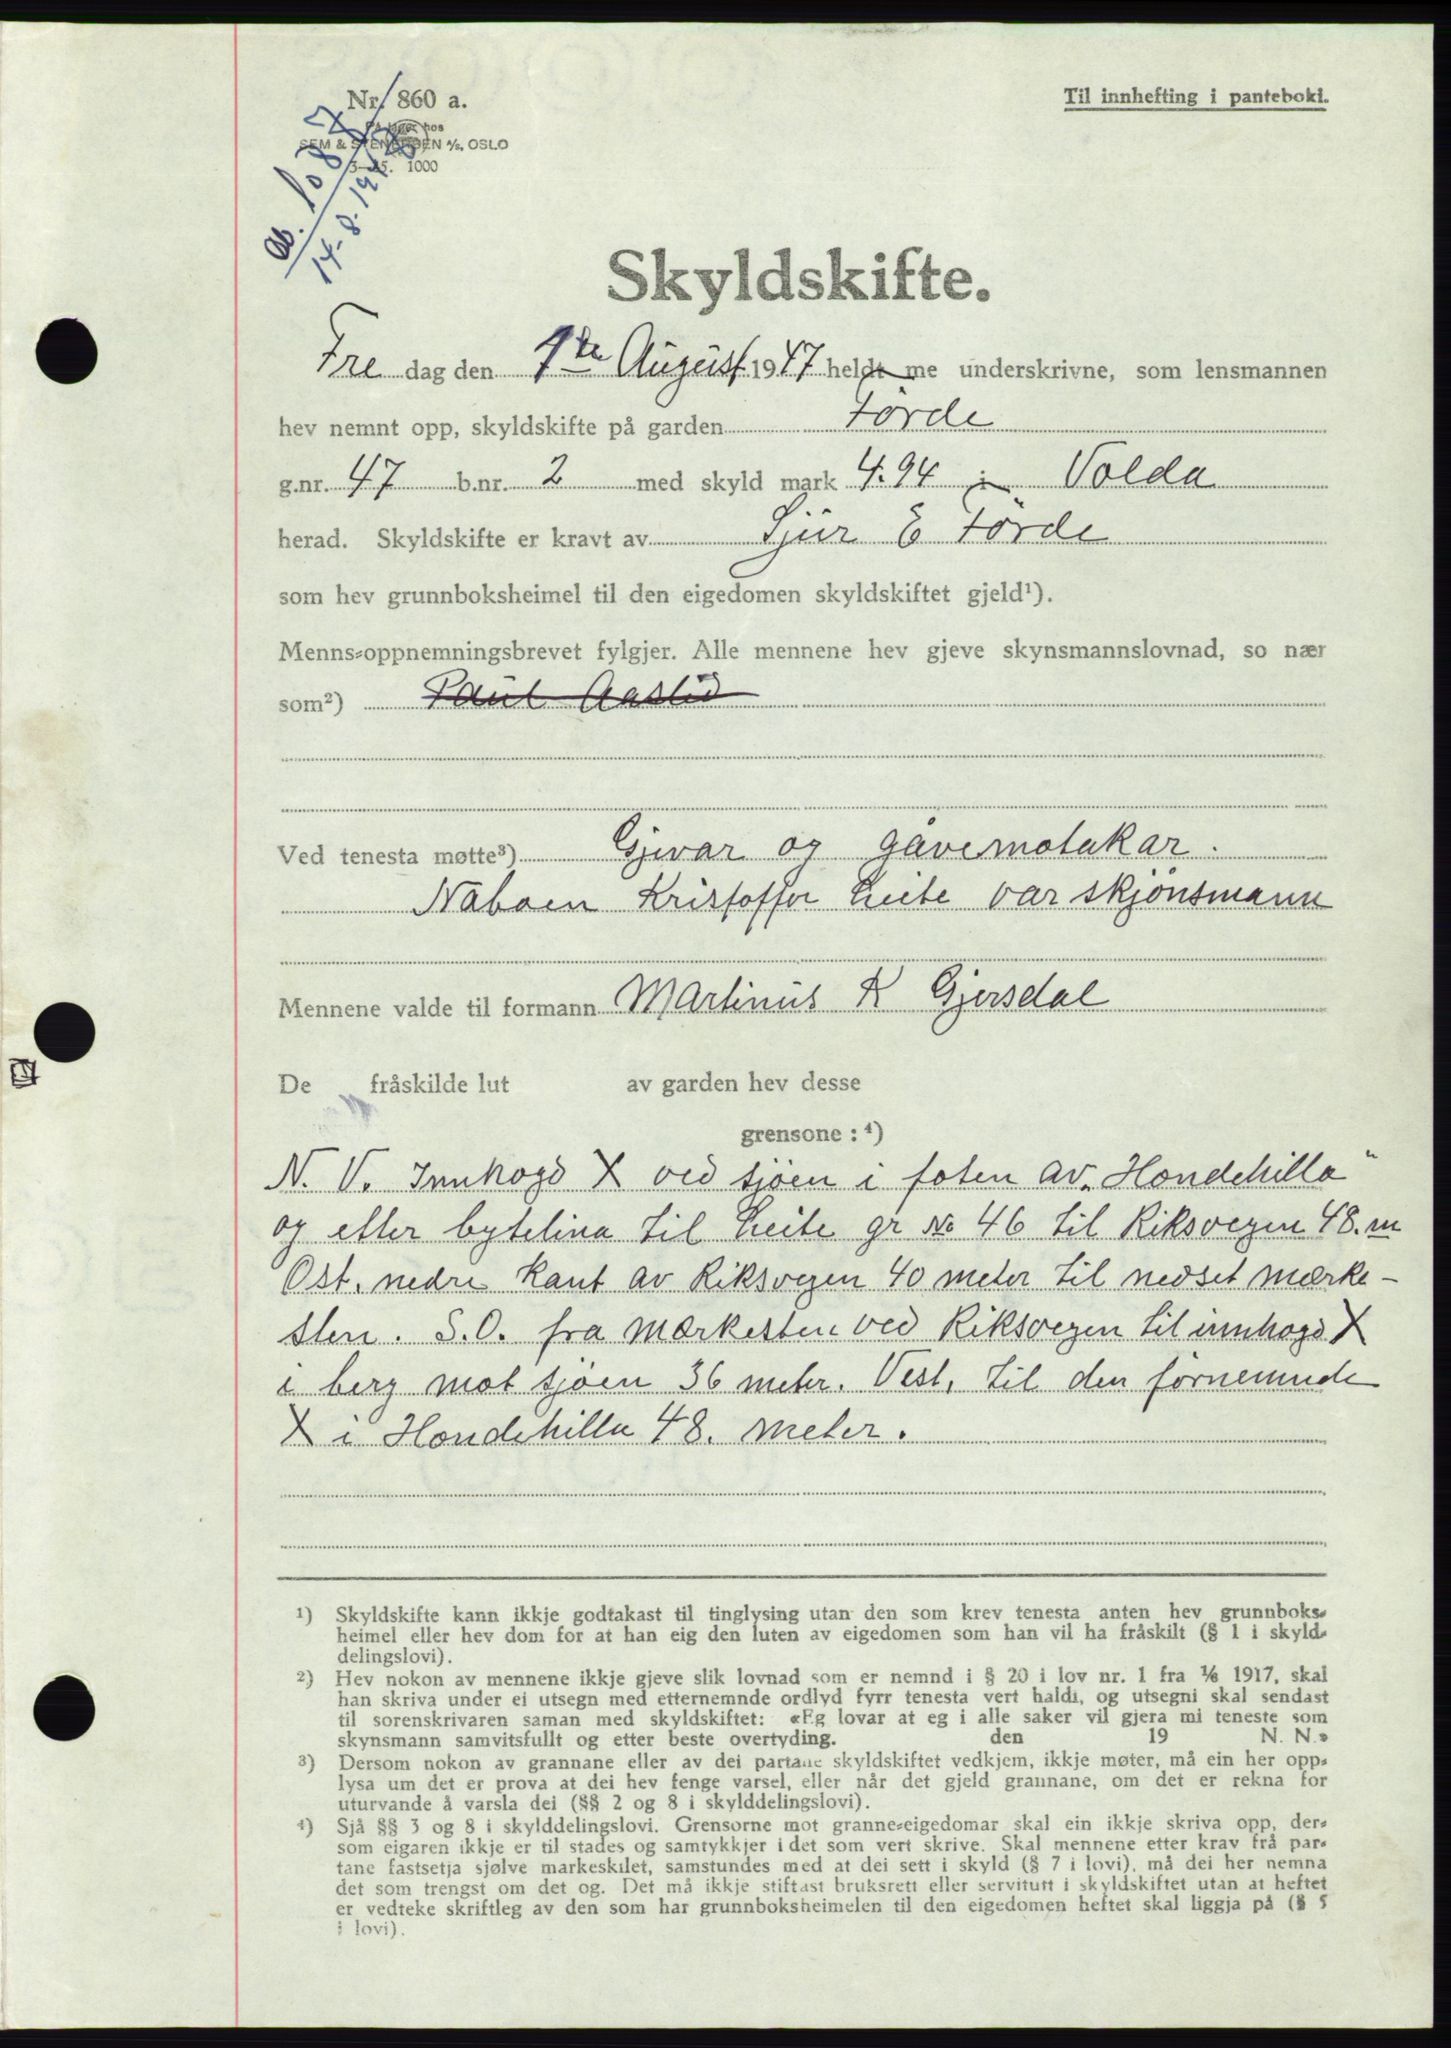 Nr. 860 a.
På lager hos
SEM & STENERSEN A/S, OSLO
3—45. 1000
Til innhefting i panteboki.
14-8-1947
Skyldskifte.
Fre dag den 1ste August 1947 heldt me underskrivne, som lensmannen
hev nemnt opp, skyldskifte på garden Förde
g.nr. 47 b.nr. 2 med skyld mark 4.94 i Volda
herad. Skyldskifte er kravt av Sjur E Förde
som hev grunnboksheimel til den eigedomen skyldskiftet gjeld¹).
Menns-oppnemningsbrevet fylgjer. Alle mennene hev gjeve skynsmannslovnad, so nær
som²) Paul Aaslid
Ved tenesta møtte³) Gjevar og gåvemotakar.
Naboen Kristoffer Leite var skjönsmann
Mennene valde til formann Martinus K Gjersdal
De fråskilde lut av garden hev desse
grensone: ⁴)
N. V. Innhogd X ved sjöen i foten av „Hondehilla"
og etter bytelina til Leite gr No 46 til Riksvegen 48. m
Ost. nedre kant av Riksvegen 40 meter til nedset mærke-
sten. S.O. fra mærkesten ved Riksvegen til innhogd X
i berg mot sjöen 36 meter. Vest, til den förnemnde
X i Hondehilla 48. meter.
¹) Skyldskifte kann ikkje godtakast til tinglysing utan den som krev tenesta anten hev grunnboks-
heimel eller hev dom for at han eig den luten av eigedomen som han vil ha fråskilt (§ 1 i skyld-
delingslovi).
²) Hev nokon av mennene ikkje gjeve slik lovnad som er nemnd i § 20 i lov nr. 1 fra 1/6 1917, skal
han skriva under ei utsegn med etternemnde ordlyd fyrr tenesta vert haldi, og utsegni skal sendast
til sorenskrivaren saman med skyldskiftet: «Eg lovar at eg i alle saker vil gjera mi teneste som
skynsmann samvitsfullt og etter beste overtyding. den 19 N. N.»
³) Dersom nokon av grannane eller av dei partane skyldskiftet vedkjem, ikkje møter, må ein her opp-
lysa um det er prova at dei hev fenge varsel, eller når det gjeld grannane, om det er rekna for
uturvande å varsla dei (§§ 2 og 8 i skylddelingslovi).
⁴) Sjå §§ 3 og 8 i skylddelingslovi. Grensorne mot granne-eigedomar skal ein ikkje skriva opp, der-
som eigaren ikkje er til stades og samtykkjer i det som vert skrive. Skal mennene etter krav frå par-
tane fastsetja sjølve markeskilet, samstundes med at dei sett i skyld (§ 7 i lovi), må dei her nemna
det som trengst om det og. Det må ikkje stiftast bruksrett eller servitutt i skyldskiftet utan at heftet
er vedteke skriftleg av den som har grunnboksheimelen til den eigedomen heftet skal liggja på (§ 5
i lovi).